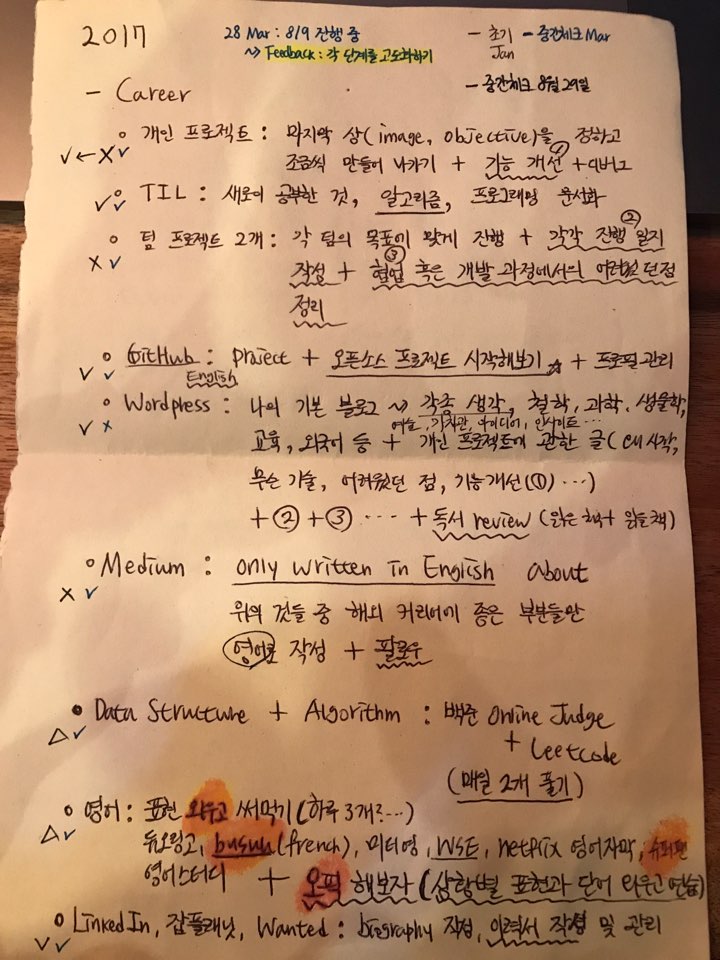 2017
28 Mar : 8/9 진행 중
~> Feedback : 각 단계를 고도화하기
- 초기 Jan
- 중간체크 Mar
- 중간체크 8월 29일
- Career
개인 프로젝트 : 마지막 상(image, objective)을 정하고
조금씩 만들어 나가기 + 기능 개선① + 디버그
TIL : 새로이 공부한 것, 알고리즘, 프로그래밍 문서화
팀 프로젝트 2개 : 각 팀의 목표에 맞게 진행 + 각각 진행 일지②
작성 + 협업③ 혹은 개발 과정에서의 어려웠던점
정리
GitHub : project + 오픈소스 프로젝트 시작해보기☆ + 프로필 관리
English
Wordpress : 나의 기본 블로그 ~> 각종 생각, 철학, 과학, 생물학,
예술, 가치관, 아이디어, 인사이트 ...
교육, 외국어 등 + 개인 프로젝트에 관한 글 (시작,
무슨 기술, 어려웠던 점, 기능개선(①) ...)
+ ② + ③ ... + 독서 review (읽은 책 + 읽을 책)
Medium : only written in English about
위의 것들 중 해외 커리어에 좋은 부분들만
영어로 작성 + 팔로우
Data Structure + Algorithm : 백준 Online Judge
+ Leetcode
(매일 2개 풀기)
영어 : 표현 외우고 써먹기 (하루 3개? ...)
듀오링고, busuu (french), 미티영, WSE, netflix 영어자막, 슈퍼팬
영어스터디 + 오픽 해보자 (상황별 표현과 단어 외우고 연습)
LinkedIn, 잡플래닛, Wanted : biography 작성, 이력서 작성 및 관리